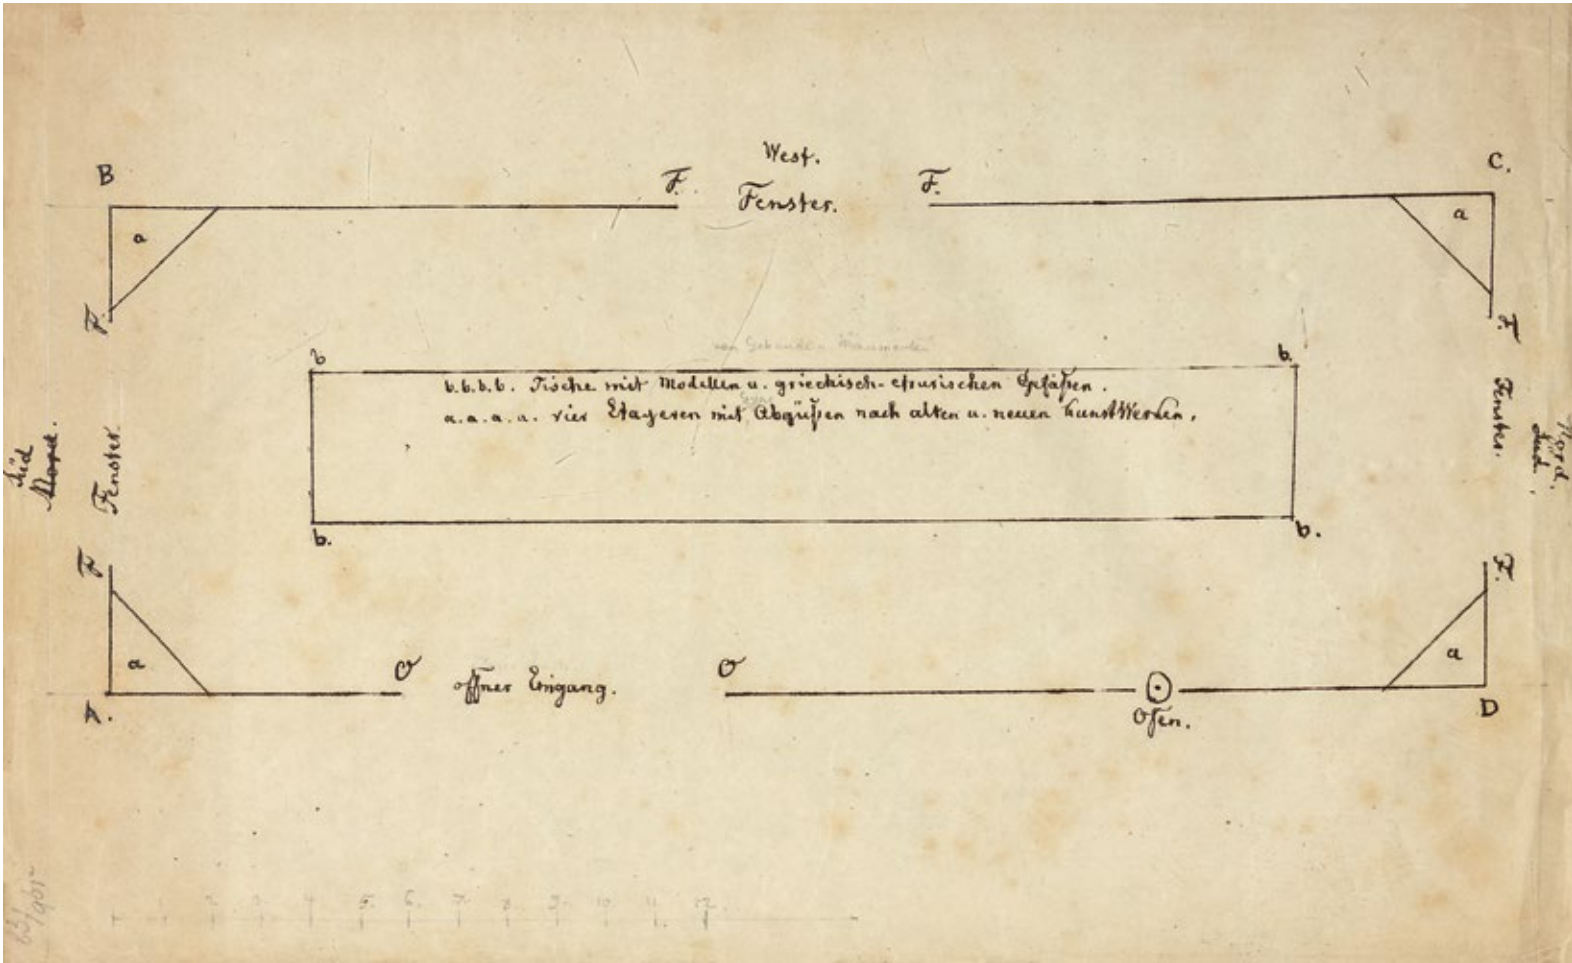 West.
B
F.
Fenster.
F.
C.
a
a
F.
F.
von Gebäuden u. Monumenten
b
b.
b.b.b.b. Tische mit Modellen u. griechisch-etrurischen Gefäßen.
a.a.a.a. vier Etageren mit Abgüßen nach alten u. neuen Kunstwerken.
Süd
Nord.
Fenster.
Fenster.
Nord.
Süd.
b.
b.
F
F.
a
a
O
offner Eingang.
O
A.
Ofen.
D
5. 6. 7. 8. 9. 10 11 12